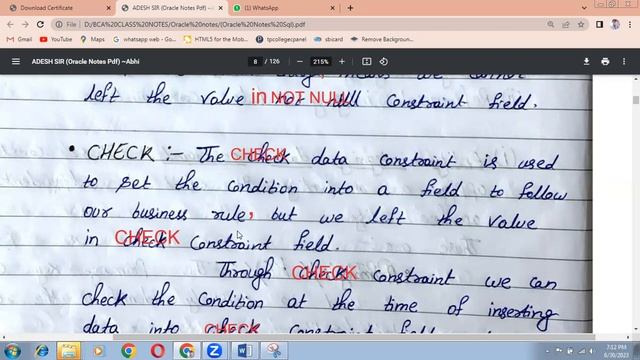 Download Certificate
ADESH SIR (Oracle Notes Pdf) ~Abhi
(1) WhatsApp
File | D:/BCA%20CLASS%20NOTES/Oracle%20notes/(Oracle%20Notes%20Sql).pdf
Gmail
YouTube
Maps
whatsapp web - Go...
HTML5 for the Mobil...
tpcollegepanel
sbicard
Remove Backgroun...
ADESH SIR (Oracle Notes Pdf) ~Abhi
8 / 126
215%
means we cannot
left the value in NOT NULL constraint field.
• CHECK :- The CHECK data constraint is used
to set the condition into a field to follow
our business rule, but we left the value
in CHECK constraint field.
Through CHECK constraint we can
check the condition at the time of inserting
data into CHECK constraint field
7:12 PM
6/30/2023